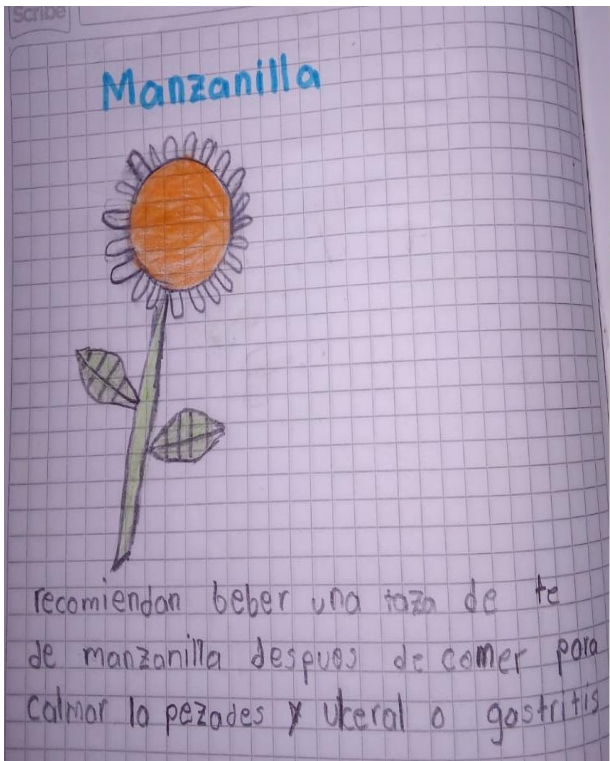 Scribe
Manzanilla
recomiendan beber una taza de te
de manzanilla despues de comer para
calmar la pezades y ulceral o gastritis